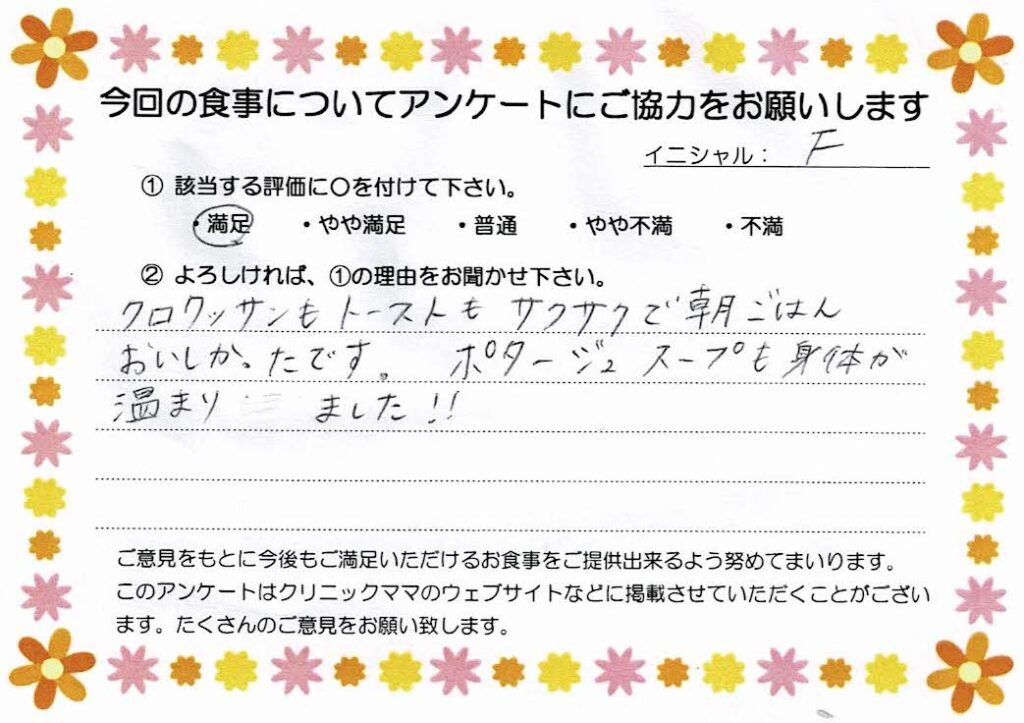 今回の食事についてアンケートにご協力をお願いします
イニシャル： F
① 該当する評価に○を付けて下さい。
・満足 ・やや満足 ・普通 ・やや不満 ・不満
② よろしければ、①の理由をお聞かせ下さい。
クロワッサンもトーストも サクサクで朝ごはん
おいしかったです。 ポタージュスープも身体が
温まり ました!!
ご意見をもとに今後もご満足いただけるお食事をご提供出来るよう努めてまいります。
このアンケートはクリニックママのウェブサイトなどに掲載させていただくことがござい
ます。たくさんのご意見をお願い致します。